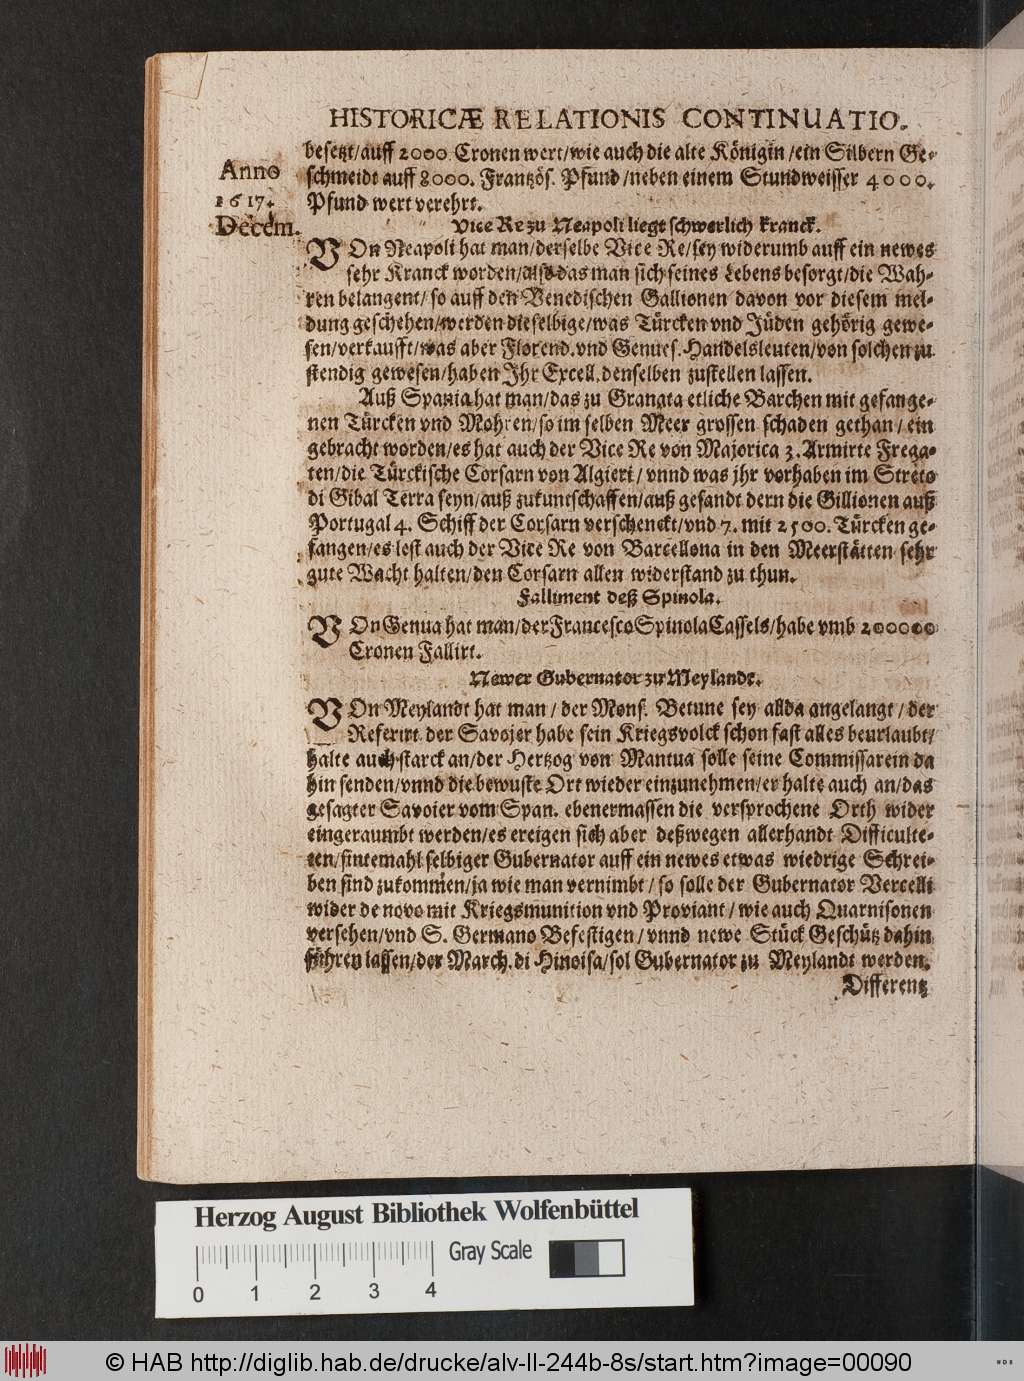 HISTORICÆ RELATIONIS CONTINUATIO.
besetzt/auff 2000. Cronen wert/wie auch die alte Königin/ein Silbern Ge-
Anno
1617.
Decem.
schmeidt auff 8000. Frantzös. Pfund/neben einem Stundweisser 4000.
Pfund wert verehrt.
Vice Re zu Neapoli liegt schwerlich kranck.
VOn Neapoli hat man/derselbe Vice Re/sey widerumb auff ein newes
sehr Kranck worden/also das man sich seines Lebens besorgt/die Wah-
ren belangent/so auff den Venedischen Gallionen davon vor diesem mel-
dung geschehen/werden dieselbige/was Türcken vnd Jüden gehörig gewe-
sen/verkaufft/was aber Florend. vnd Genues. Handelsleuten/von solchen zu
stendig gewesen/haben Ihr Excell. denselben zustellen lassen.
Auß Spania hat man/das zu Granata etliche Barchen mit gefange-
nen Türcken vnd Mohren/so im selben Meer grossen schaden gethan/ein
gebracht worden/es hat auch der Vice Re von Majorica 3. Armirte Frega-
ten/die Türckische Corsarn von Algieri/vnnd was jhr vorhaben im Streto
di Gibal Terra seyn/auß zukuntschaffen/auß gesandt dern die Gillionen auß
Portugal 4. Schiff der Corsarn verschenckt/vnd 7. mit 2500. Türcken ge-
fangen/es lest auch der Vice Re von Barcellona in den Meerstätten sehr
gute Wacht halten/den Corsarn allen widerstand zu thun.
Falliment deß Spinola.
VOn Genua hat man/der Francesco Spinola Cassels/habe vmb 200000
Cronen Fallirt.
Newer Gubernator zu Meylandt.
VOn Meylandt hat man/der Mons. Betune sey allda angelangt/der
Referirt der Savojer habe sein Kriegsvolck schon fast alles beurlaubt/
halte auch starck an/der Hertzog von Mantua solle seine Commissarein da
hin senden/vnnd die bewuste Ort wieder einzunehmen/er halte auch an/das
gesagter Savoier vom Span. ebenermassen die versprochene Orth wider
eingeraumbt werden/es ereigen sich aber deßwegen allerhandt Difficulte-
ten/sintemahl selbiger Gubernator auff ein newes etwas wiedrige Schrei-
ben sind zukommen/ja wie man vernimbt/so solle der Gubernator Vercelli
wider de novo mit Kriegsmunition vnd Proviant/wie auch Quarnisonen
versehen/vnd S. Germano Befestigen/vnnd newe Stück Geschütz dahin
führen lassen/der March. di Hinoisa/sol Gubernator zu Meylandt werden.
Differentz
Herzog August Bibliothek Wolfenbüttel
Gray Scale
0 1 2 3 4
© HAB http://diglib.hab.de/drucke/alv-ll-244b-8s/start.htm?image=00090